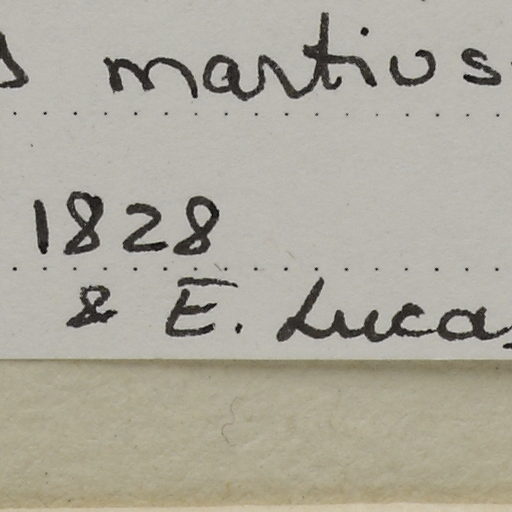 martius
1828
& E. Lucas